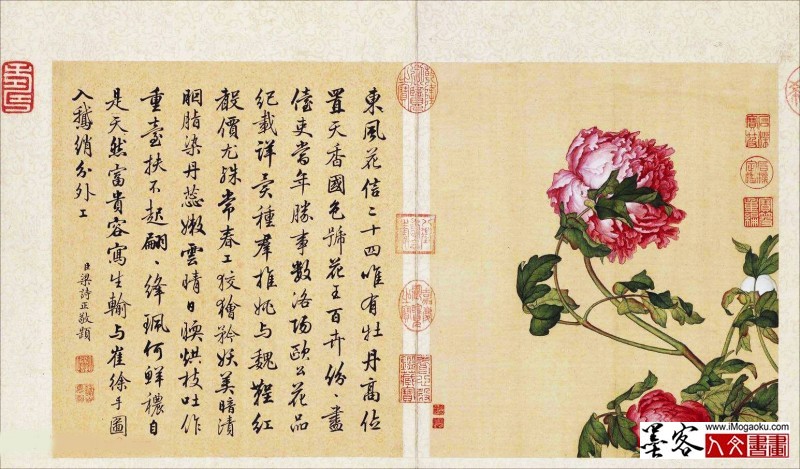 東風花信二十四唯有牡丹高位
置天香國色號花王百卉份、盡
儓吏當年勝事數洛陽歐公花品
紀載詳异種羣推姚與魏鞓紅
聲價尤殊常春工狡獪矜妖美暗漬
胭脂染丹蕊嫩雲晴日暎烘枝吐作
重臺扶不起翩、絳珮何鮮穠自
是天然富貴容寫生輸與崔徐手圖
入鵝綃分外工
臣梁詩正敬題
www.iMogaoku.com
墨客人文書畫